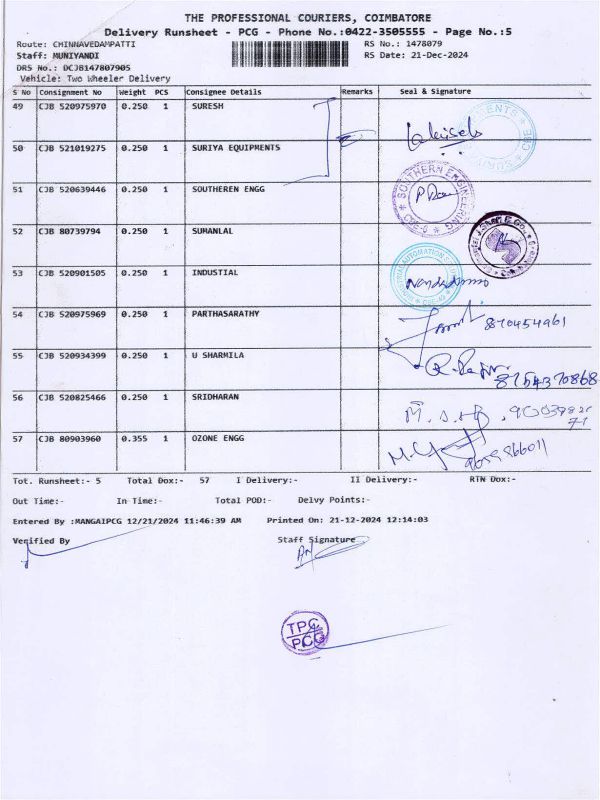 THE PROFESSIONAL COURIERS, COIMBATORE
Delivery Runsheet - PCG - Phone No.:0422-3505555 - Page No.:5
Route: CHINNAVEDAMPATTI RS No.: 1478079
Staff: MUNIYANDI RS Date: 21-Dec-2024
DRS No.: DCJB147807905
Vehicle: Two Wheeler Delivery
S No Consignment No Weight PCS Consignee Details Remarks Seal & Signature
49 CJB 520975970 0.250 1 SURESH
50 CJB 521019275 0.250 1 SURIYA EQUIPMENTS
51 CJB 520639446 0.250 1 SOUTHEREN ENGG
SOUTHERN ENGINEERING
52 CJB 80739794 0.250 1 SUMANLAL
53 CJB 520901505 0.250 1 INDUSTIAL
54 CJB 520975969 0.250 1 PARTHASARATHY
870454961
55 CJB 520934399 0.250 1 U SHARMILA
8754370868
56 CJB 520825466 0.250 1 SRIDHARAN
57 CJB 80903960 0.355 1 OZONE ENGG
Tot. Runsheet:- 5 Total Dox:- 57 I Delivery:- II Delivery:- RTN Dox:-
Out Time:- In Time:- Total POD:- Delvy Points:-
Entered By :MANGAIPCG 12/21/2024 11:46:39 AM Printed On: 21-12-2024 12:14:03
Verified By Staff Signature
TPC
PCG